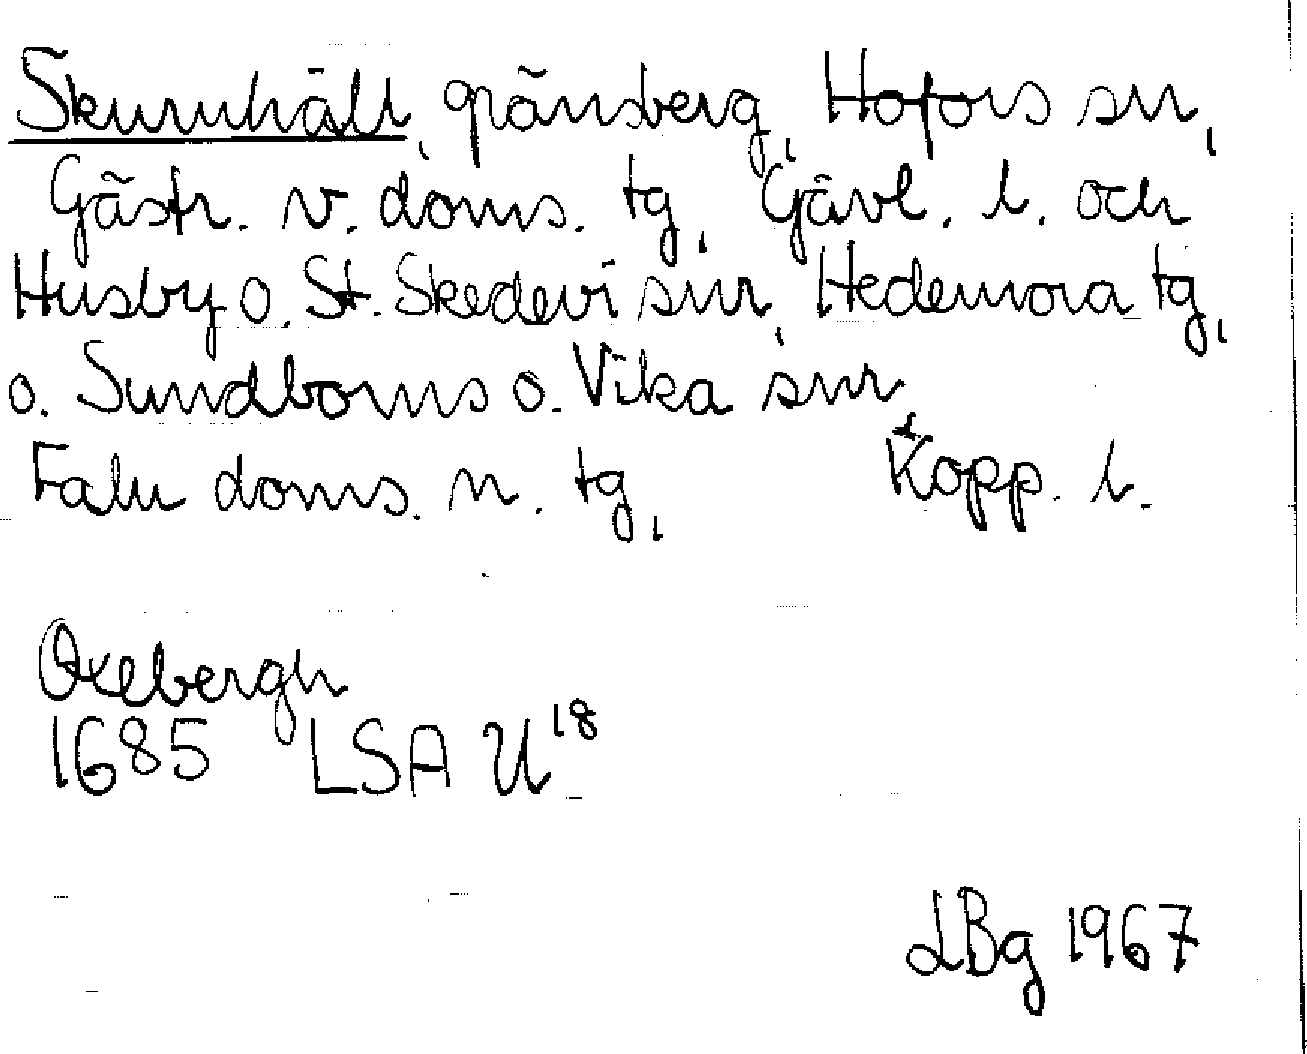 Skuruhäll, gränsberg, Hofors sn,
Gästr. v. doms. tg, Gävl. l. och
Husby o. St. Skedevi snr, Hedemora tg,
o. Sundborns o. Vika snr
Falu doms. n. tg, Kopp. l.
Oxebergh
1685 LSA U18
LBg 1967